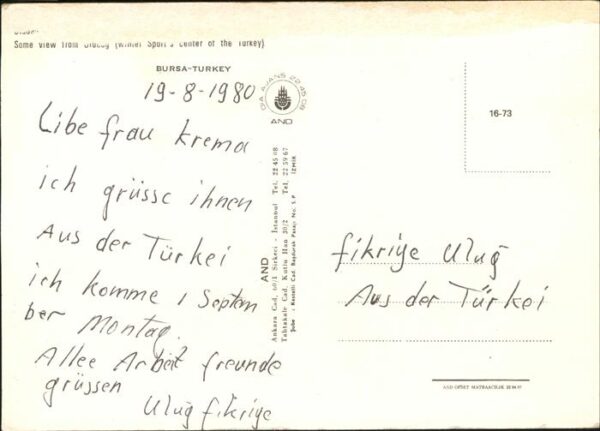 Some view from Uludağ (Winter Sport's Center of the Turkey)
BURSA-TURKEY
19-8-1980
Libe frau krema
ich grüsse ihnen
Aus der Türkei
ich komme 1 Septem
ber Montag.
Allee Arbeit freunde
grüssen
Ulug fikriye
AJANS 22 45 08
AND
AND
Ankara Cad. 60/1 Sirkeci - Istanbul Tel. 22 45 08
Tahtakale Cad. Kutlu Han 30/2 Tel. 22 59 67
Şube : Kemeraltı Cad. Başdurak Pasaj No. 5 P. IZMIR
16-73
fikriye Ulug
Aus der Türkei
AND OFSET MATBAACILIK